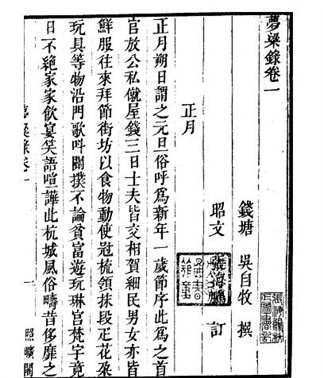 夢粱錄卷一
錢塘 吳自牧 撰
昭文 張海鵬 訂
正月
正月朔日謂之元旦俗呼爲新年一歲節序此爲之首
官放公私僦屋錢三日士夫皆交相賀細民男女亦皆
鮮服往來拜節街坊以食物動使冠梳領抹段疋花朶
玩具等物沿門歌呌關撲不論貧富遊玩琳宮梵宇竟
日不絕家家飲宴笑語喧譁此杭城風俗疇昔侈靡之
夢粱錄卷一 一 照曠閣